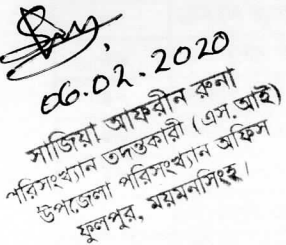 06.02.2020
সাজিয়া আফরীন রুনা
পরিসংখ্যান তদন্তকারী (এস.আই)
উপজেলা পরিসংখ্যান অফিস
ফুলপুর, ময়মনসিংহ।